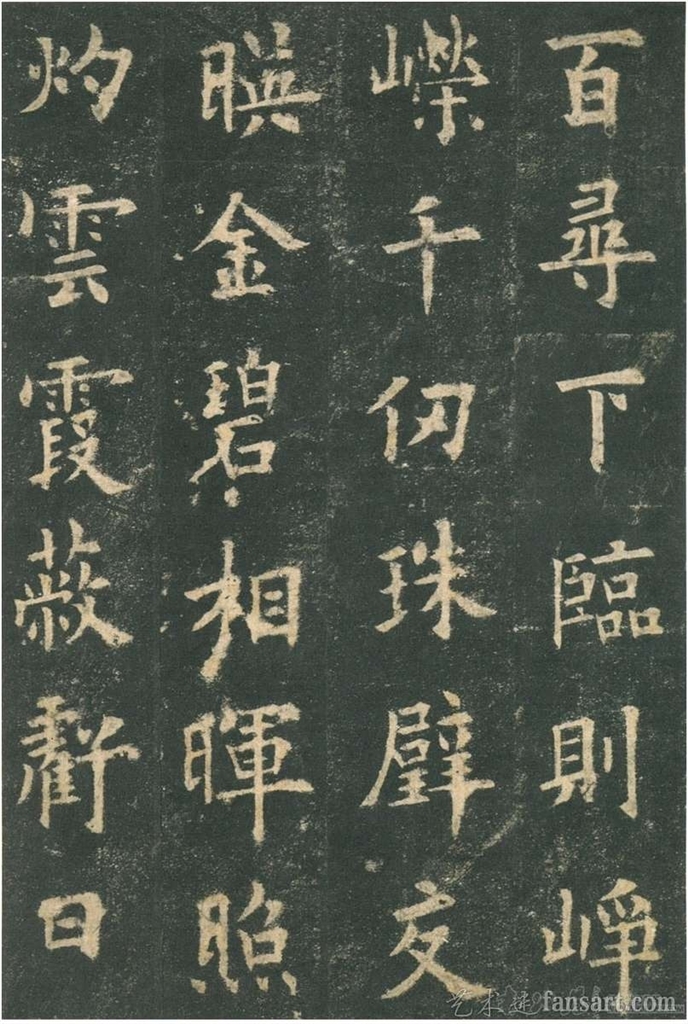 百尋下臨則崢
嶸千仞珠璧交
暎金碧相暉照
灼雲霞蔽虧日
fansart.com